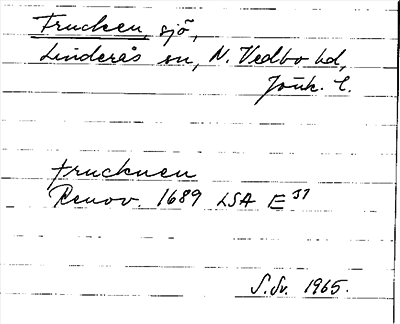 Frucken, sjö,
Linderås sn, N. Vedbo hd,
Jönk. l.
frucknen
Renov. 1689 LSA E 37
S.Sv. 1965.